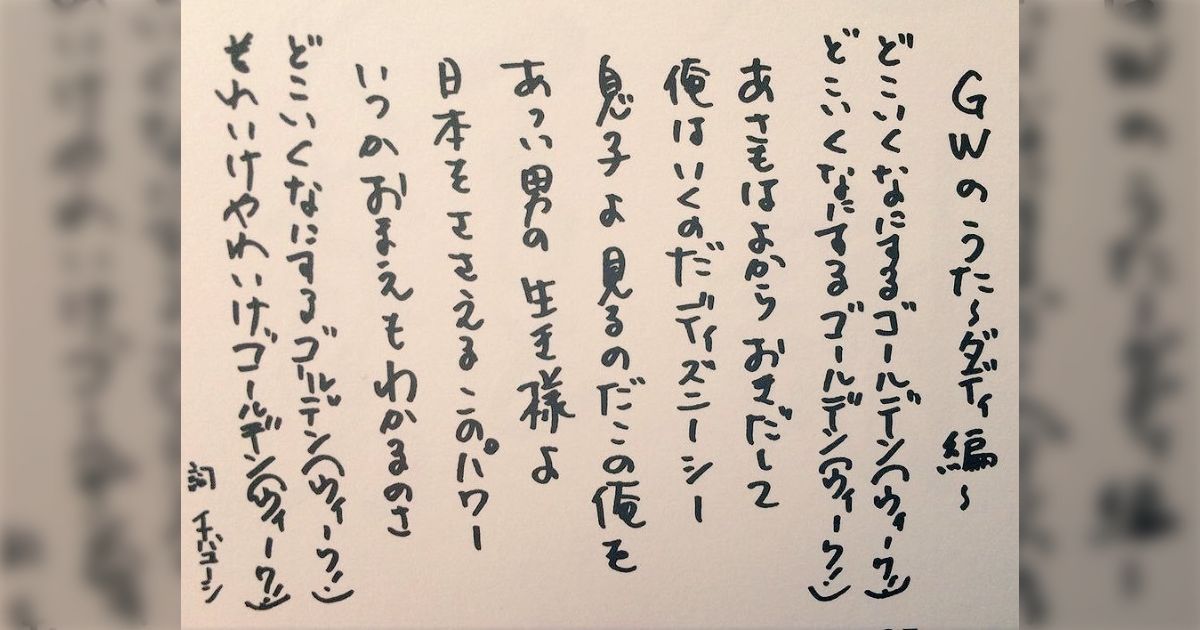 GWのうた~ダディ編~
どこいくなにするゴールデン(ウィーク!)
どこいくなにするゴールデン(ウィーク!)
あさもはよからおきだして
俺はいくのだディズニーシー
息子よ見るのだこの俺を
あつい男の生き様よ
日本をささえるこのパワー
いつかおまえもわかるのさ
どこいくなにするゴールデン(ウィーク!)
そわいけやわいけゴールデン(ウィーク!)
詞 チバユーシ